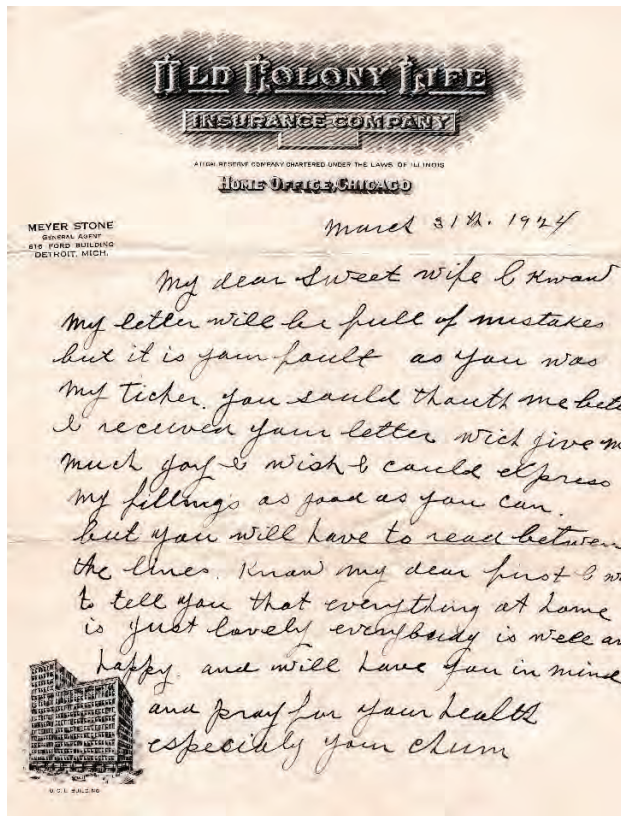 OLD COLONY LIFE
INSURANCE COMPANY
A LEGAL RESERVE COMPANY CHARTERED UNDER THE LAWS OF ILLINOIS
HOME OFFICE, CHICAGO
MEYER STONE
GENERAL AGENT
616 FORD BUILDING
DETROIT, MICH.
March 31th. 1924
My dear Sweet wife I Kwand
my letter will be full of mistakes
but it is your foult as you was
my Ticher. you sould thouth me bet
I received your letter wich give m
much joy I wish I could express
my fillings as good as you can.
but you will have to read between
the lines. Know my dear first I w
to tell you that everything at home
is just lovely everybody is well an
happy. and will have you in mind
and pray for your health
especialy your chum
O.C.L. BUILDING